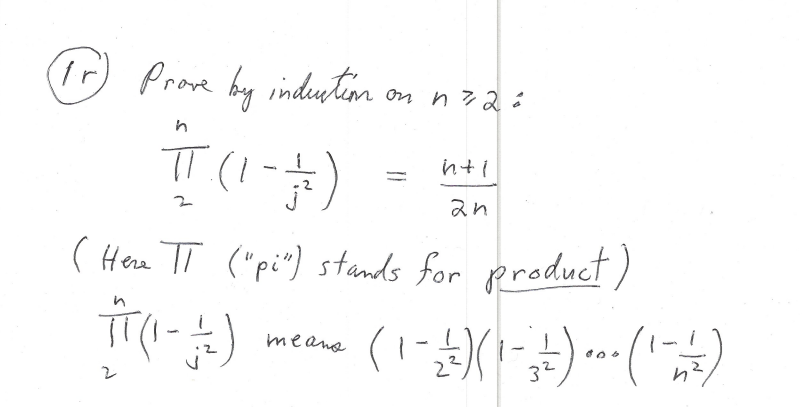 (1r) Prove by induction on n ≥ 2 :
n
∏ (1 - 1/j²) = (n+1)/(2n)
2
( Here ∏ ("pi") stands for product )
n
∏ (1 - 1/j²) means (1 - 1/2²)(1 - 1/3²) ... (1 - 1/n²)
2